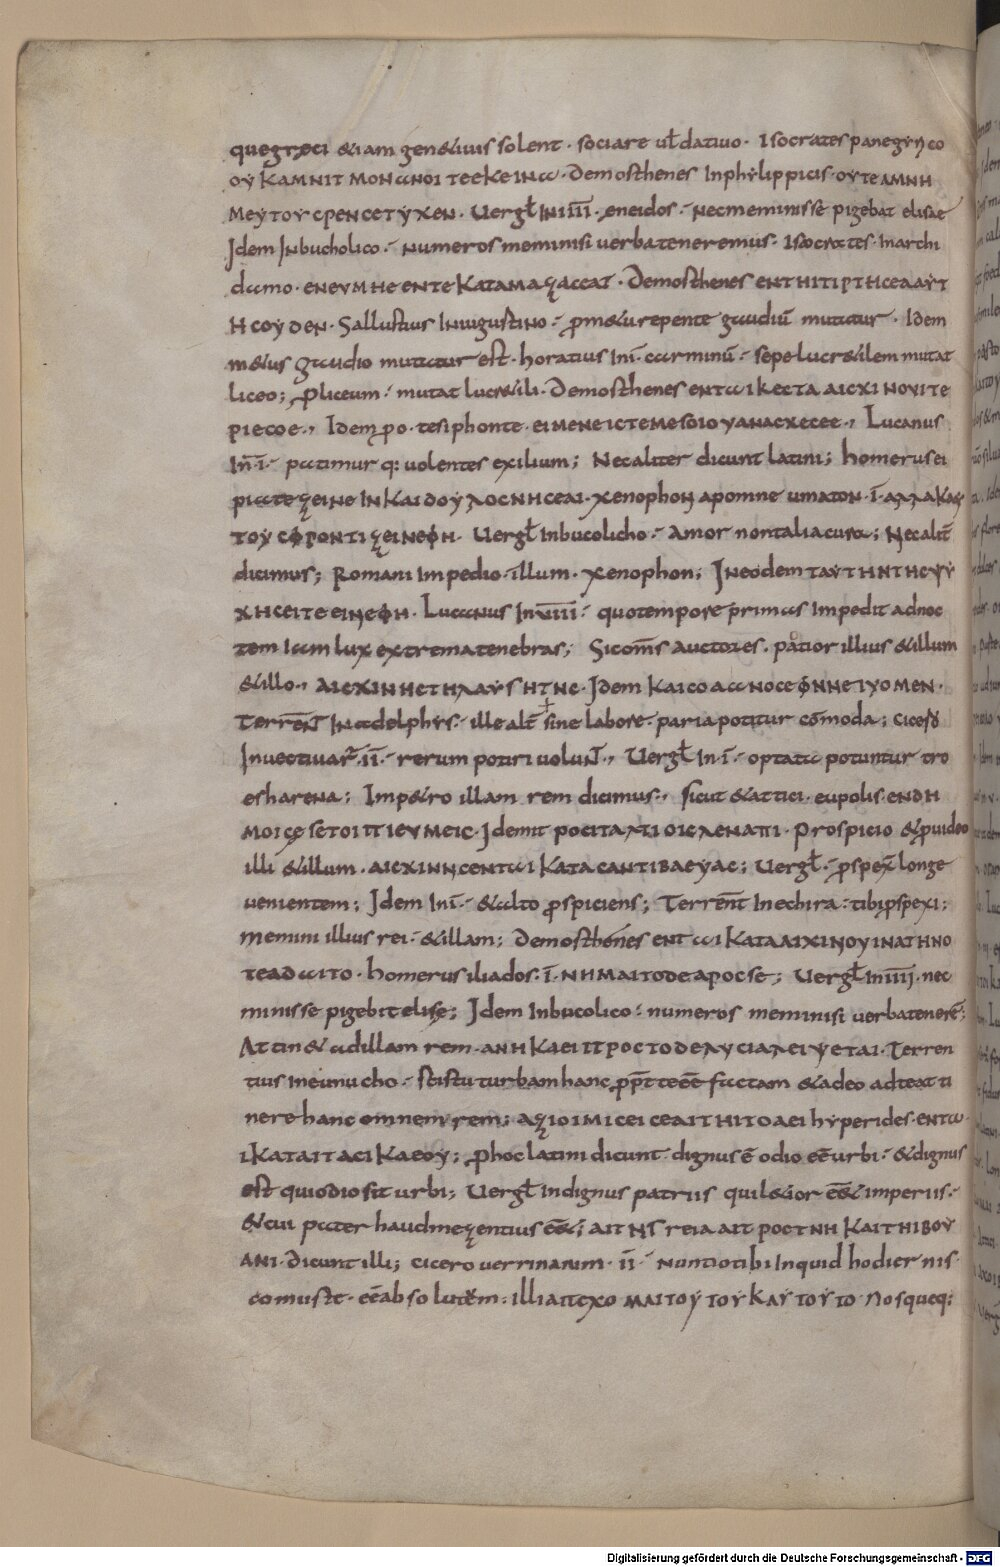 quegreci &iam gen&iuis solent · sociare ul datiuo · Isocrates panegyrico
ΟΥ ΚΑΜΝΙΤ ΜΟΝωΝΟΙ ΤΕΕΚΕΙΝω · Demosthenes Inphylippicis · ΟΥΤΕ ΑΜΝΗ
ΜΕΥΤΟΥ CΡΕΝCΕΤΥΧΕΝ · Uergł IN IIII · eneidos · Necmeminisse pigebat elisae
Idem Inbucholico · Numeros memini si uerba teneremus · Isocrates · Inarchi
damo · ΕΝΕΥΜΗΕ ΕΝΤΕ ΚΑΤΑΜΑ · Demosthenes ΕΝΤΗΙΤΙΡΤΗCΕΛΑΥΤ
Η CΟΥ ΔΕΝ · Sallustius Iniugustino · ꝓm&urepente gaudiū mutatur · Idem
m&us gaudio mutatur est · horatius Inī · carminū · sepe lucr&ilem mutat
liceo; ꝓliceum · mutat lucr&ili · Demosthenes ΕΝΤωΙ ΚΕCΤΑ ΑΙCΧΙ ΝΟΥΙΤΕ
ΡΙΕCΟΕ · Idem ꝓo · tesiphonte · ΕΙΜΕΝΕΙCΤΕΜΕSΟΙΟΥΑΝΑCΧΕCΕΕ · Lucanus
In · ī · patimur q: uolentes exilium; Necaliter dicunt latini; homerus ei
xenophon apomne umaton · ī ·
ΤΟΥ CΦΡΟΝΤΙ ΕΙΝΕΦΗ · Uergł Inbucolicho · Amor non talia curat; Necalit̄
dicimus; Romani Impedio · illum · xenophon; Ineodem ΤΑΥΤΗΝΤΗCΨΥ
ΧΗCΕΙΤΕ ΕΙΝΕΦΗ · Lucanus In uiiii · quo tempore primas Impedit ad noc
tem Iam lux extrema tenebras; Sicom̄s auctores · patior illius &illum
&illo · ΑΙCΧΙΝΗC ΤΗΛΑΥSΗΤΝΕ · Idem ΚΑΙCΟΑωΝΟCΕΦΝΝΕΙΥΟΜΕΝ ·
Terren̄t Inadelphys · ille alt̄ sine labore · paria potitur cōmoda; cicero
Inuectiuar · II · rerum potiri uolunt · Uergł In · ī · optata potuntur tro
es harena; Imp&ro illam rem dicimus · sicut &attici · eupolis · ΕΝΔΗ
ΜΟΙC SΕΤΟΙΠΙΕΥΜΕΙC · Idemit ΡΟCΙΤΑ ΛΤΙ ΟΙΚΛΕΝΑΠΙ · Prospicio &ꝓuideo
illi &illum · ΑΙCΧΙΝΝCΕΝΤωΙ ΚΑΤΑCΑΝΤΙΒΑΕΥΑC; Uergł · ꝓspex̄ longe
uenientem; Idem Inī · &alto ꝓspiciens; Terren̄t Inechira · tibi ꝓspexi;
memini illius rei · &illam; Demosthénes ΕΝΤωΙ ΚΑΤΑΛΙΧΙΝΟΥΙΝΑΤΗΝΟ
ΤΕΑDωΙΤΟ · homerus iliados · ī · ΝΗΜΑΙΤΟΔΕΑΡΟCSΕ; Uergł In IIII · nec
minisse pigebit elise; Idem Inbucolico · numeros memini si uerba tenerē;
Attin& adillam rem · ΑΝΗ ΚΛΕΙΠΡΟCΤΟΔΕΛΥCΙΑΛΕΙΨΕΤΑΙ · Terren
tius Ineunucho · turbam hanc &adeo ad te at ti
nere hanc omnem rem; ΙΟΙΜΙCΕΙ CΕΑΙΤΗΙΤΟΑΕΙ hyperides · ΕΝΤω
Ι ΚΑΤΑΙΤΑCΙ ΚΑΕΟΥ; ꝓhoc latini dicunt dignus ē odio eēurbi · &dignus
est qui odio sit urbi; Uergł Indignus patriis qui l&ior eē& imperiis ·
&cui pater haud mezentius eē&; ΑΙΤΗS ΓΕΙΑ ΑΙΤ ΡΟCΤΝΗ ΚΑΙΤΗΙΒΟΥ
ΑΝΙ · Dicunt illi; cicero uerrinarum · II · Nuntio tibi Inquid hodiernis
comuste · eēabsolutum · illi ΑΠΕΧΟ ΜΑΙ ΤΟΥ ΤΟΥ ΚΑΥΤΟΥΤΟ · Nosqueq: